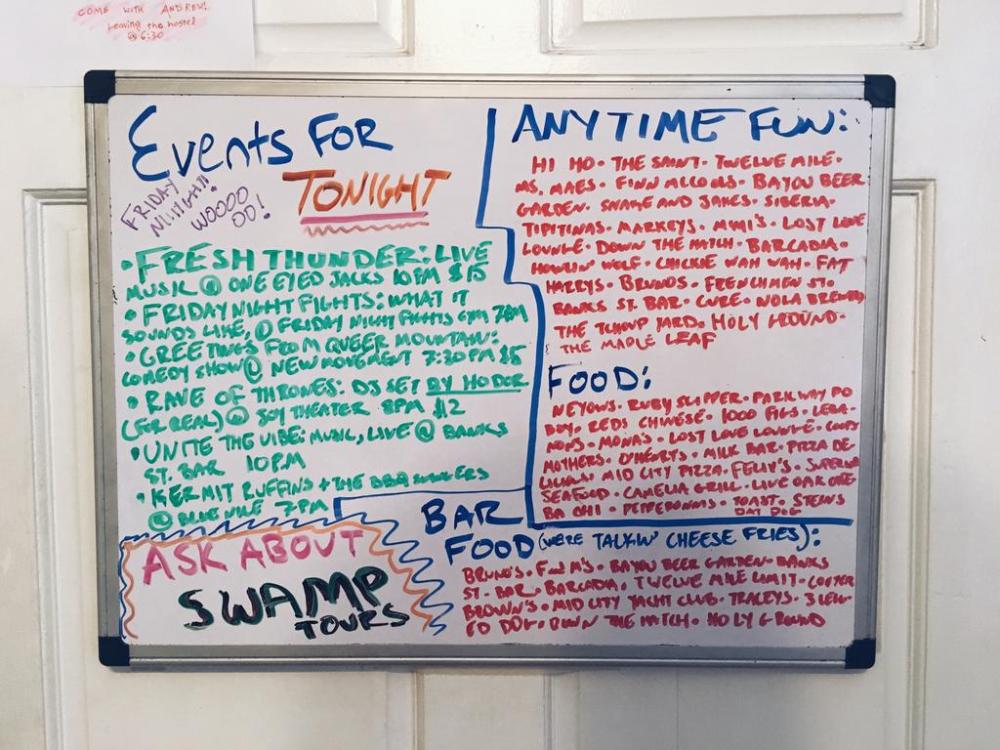 COME WITH ANDREW!
Leaving the hostel
@ 6:30
Events FOR
TONIGHT
FRIDAY
NIIIIGHT!!
WOOOO
OO!
• FRESH THUNDER: LIVE
MUSIC @ ONE EYED JACKS 10PM $15
• FRIDAY NIGHT FIGHTS: WHAT IT
SOUNDS LIKE, @ FRIDAY NIGHT FIGHTS GYM 7PM
• GREETINGS FROM QUEER MOUNTAIN:
COMEDY SHOW @ NEW MOVEMENT 7:30PM $5
• RAVE OF THRONES: DJ SET BY HODOR
(FOR REAL) @ JOY THEATER 8PM $12
• UNITE THE VIBE: MUSIC, LIVE @ BANKS
ST. BAR 10PM
• KERMIT RUFFINS + THE BBQ SWINGERS
@ BLUE NILE 7PM
ASK ABOUT
SWAMP
TOURS
ANYTIME FUN:
HI HO • THE SAINT • TWELVE MILE •
MS. MAES • FINN MCCOOLS • BAYOU BEER
GARDEN • SNAKE AND JAKES • SIBERIA •
TIPITINAS • MARKEYS • MIMI'S • LOST LOVE
LOUNGE • DOWN THE HATCH • BARCADIA •
HOWLIN' WOLF • CHICKIE WAH WAH • FAT
HARRYS • BRUNOS • FRENCHMEN ST •
BANKS ST. BAR • CURE • NOLA BREWING
THE TCHOUP YARD • HOLY GROUND •
THE MAPLE LEAF
FOOD:
NEYOWS • RUBY SLIPPER • PARKWAY PO
BOY • REDS CHINESE • 1000 FIGS • LEBA-
NONS • MONA'S • LOST LOVE LOUNGE •
MOTHERS • O'HENRYS • MILK BAR • PIZZA DE-
LICIOUS MID CITY PIZZA • FELIX'S • SUPERIOR
SEAFOOD • CAMELIA GRILL • LIVE OAK CAFE
BA CHI • PEPPERONNIS • TOAST • STEINS
DAT DOG
BAR
FOOD (WERE TALKIN' CHEESE FRIES):
BRUNO'S • FINN M'S • BAYOU BEER GARDEN • BANKS
ST. BAR • BARCADIA • TWELVE MILE LIMIT • COOTER
BROWN'S • MID CITY YACHT CLUB • TRACEYS • 3 LEG-
ED DOG • DOWN THE HATCH • HOLY GROUND